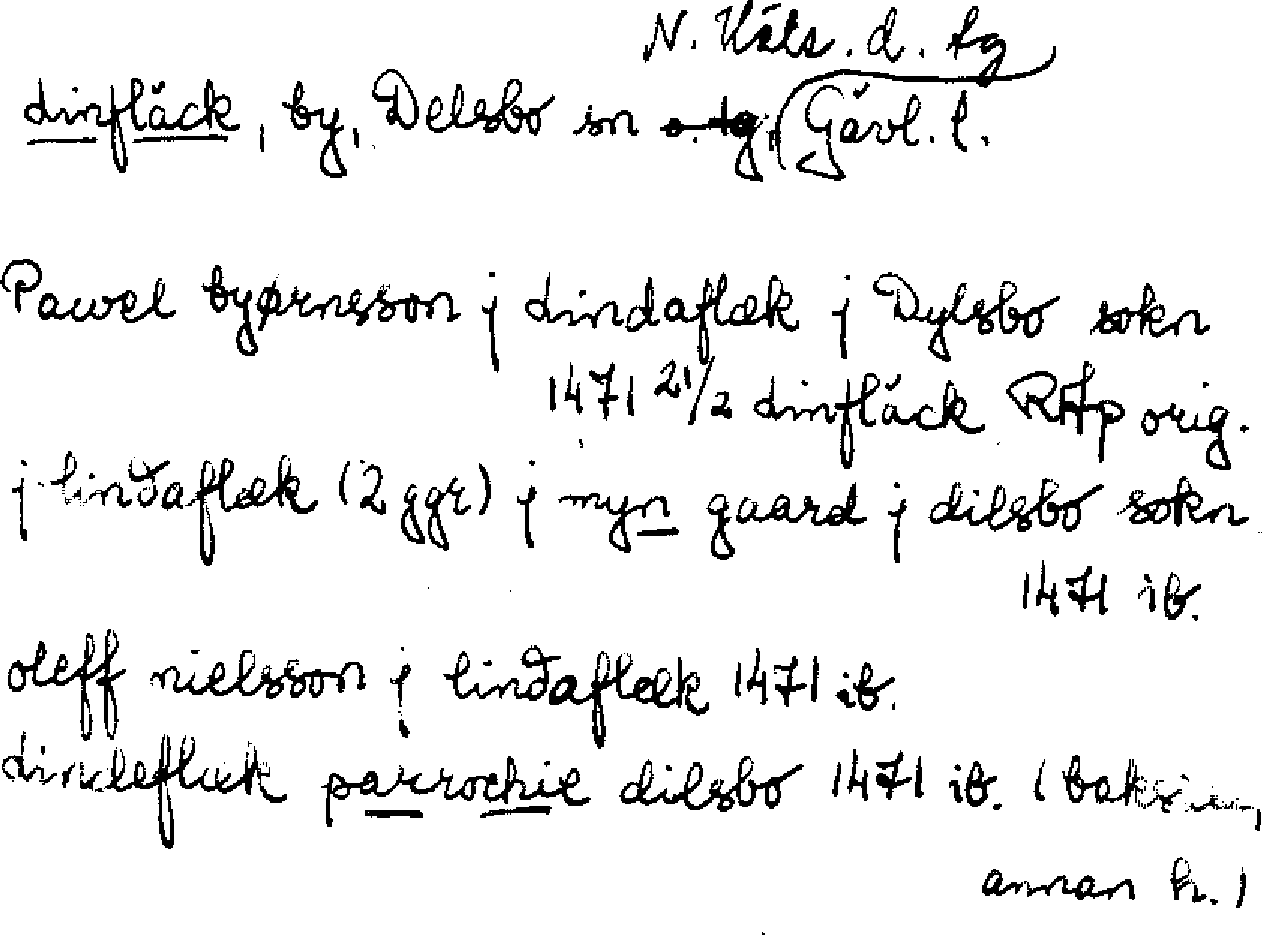 N. Häls. d. tg
Linfläck, by, Delsbo sn o. tg, Gävl. l.
Pawel byørnsson j Lindaflæk j Dylsbo sokn
1471 21/2 Linfläck RAp orig.
j lindaflæk (2 ggr) j myn gaard j dilsbo sokn
1471 ib.
oleff nielsson j lindaflæk 1471 ib.
Lindeflæk parrochie dilsbo 1471 ib. (baksidan,
annan h.)